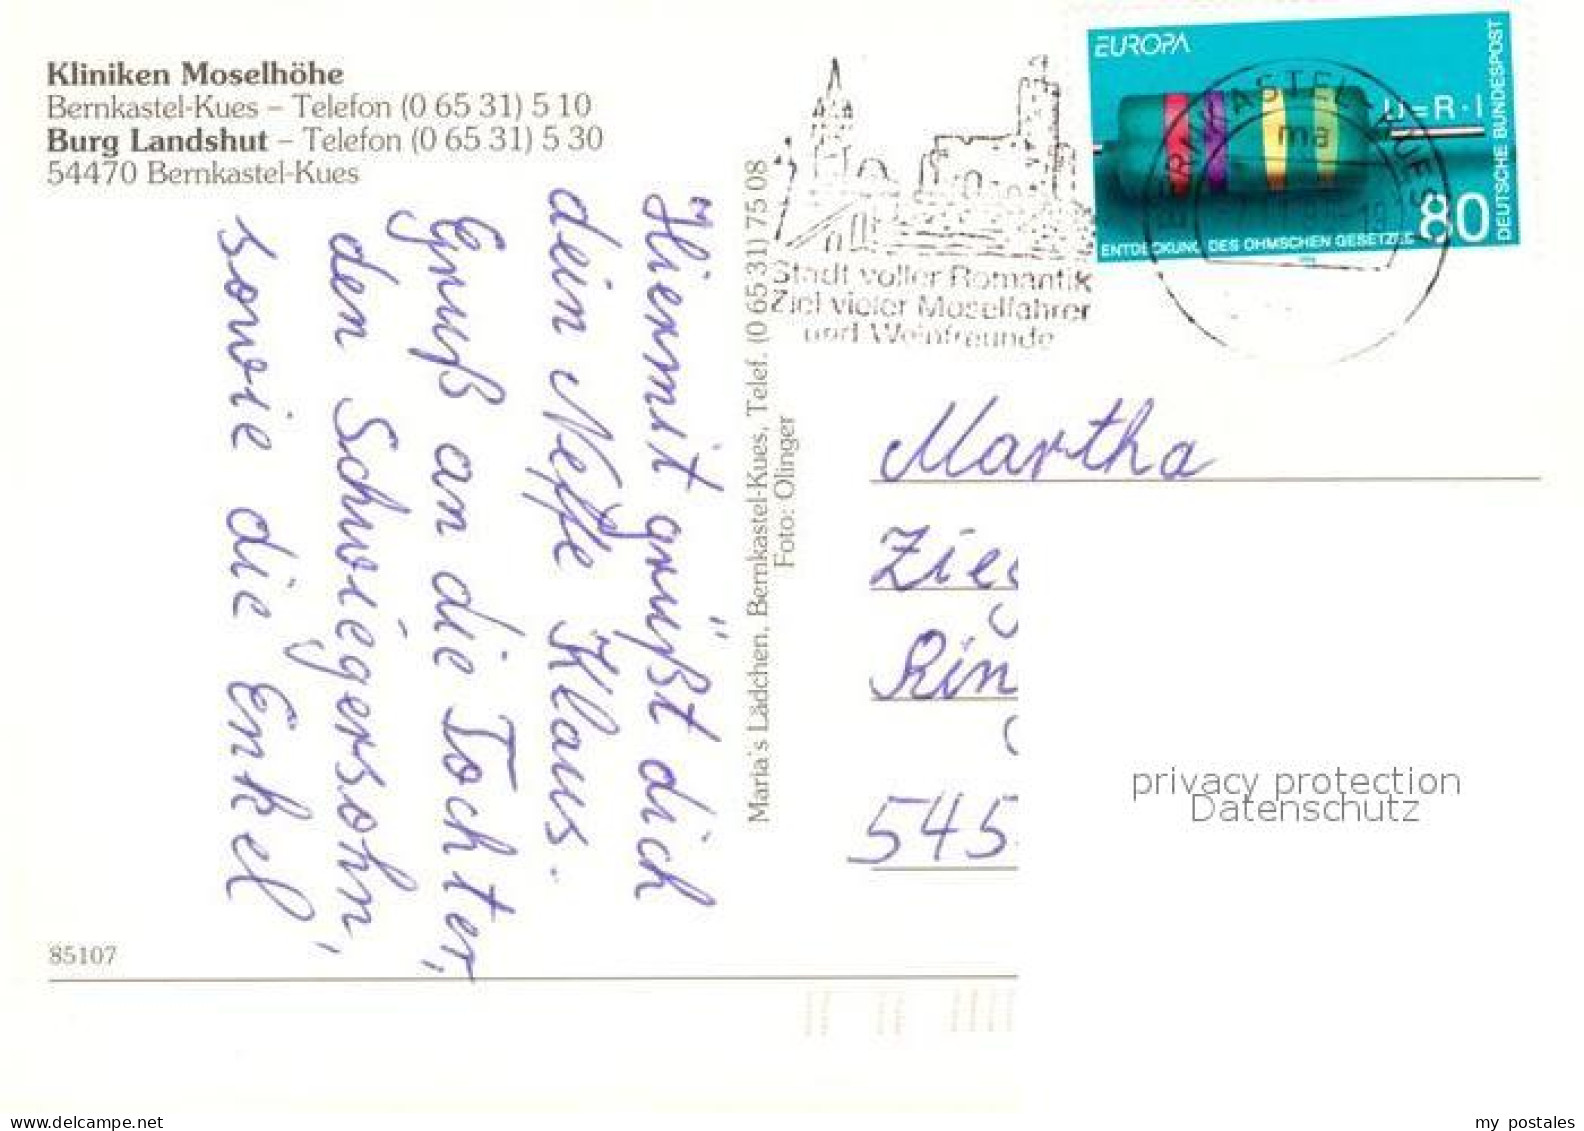 Kliniken Moselhöhe
Bernkastel-Kues – Telefon (0 65 31) 5 10
Burg Landshut – Telefon (0 65 31) 5 30
54470 Bernkastel-Kues
Hiermit grüßt dich
dein Neffe Klaus.
Gruß an die Tochter,
den Schwiegersohn,
sowie die Enkel
85107
Maria's Lädchen, Bernkastel-Kues, Telef. (0 65 31) 75 08
Foto: Olinger
Stadt voller Romantik
Ziel vieler Moselfahrer
und Weinfreunde
EUROPA
U=R·I
ENTDECKUNG DES OHMSCHEN GESETZES
80
DEUTSCHE BUNDESPOST
BERNKASTEL-KUES
ma
Martha
Zie
Rin
545
privacy protection
Datenschutz
my postales